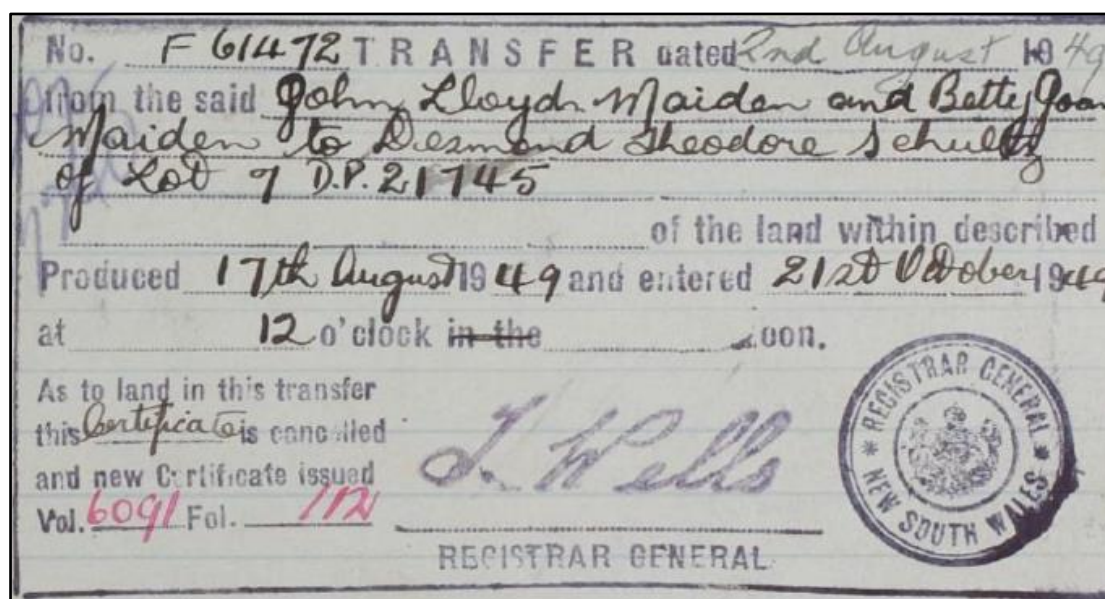 No. F 61472 TRANSFER dated 2nd August 1949
from the said John Lloyd Maiden and Betty Joan
Maiden to Desmond Theodore Schultz
of Lot 9 D.P. 21745
of the land within described
Produced 17th August 1949 and entered 21st October 1949
at 12 o'clock in the noon.
As to land in this transfer
this Certificate is cancelled
and new Certificate issued
Vol. 6091 Fol. 112
L. Wells
REGISTRAR GENERAL
REGISTRAR GENERAL
NEW SOUTH WALES